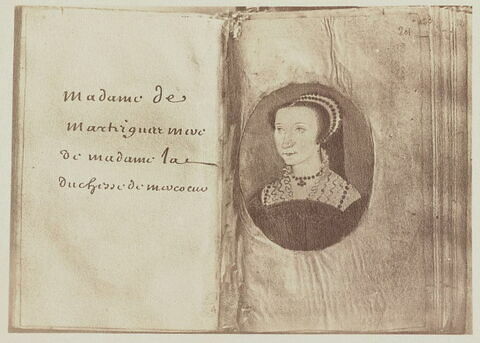 Madame de
Martiguar mere
de madame la
duchesse de mercœur
201